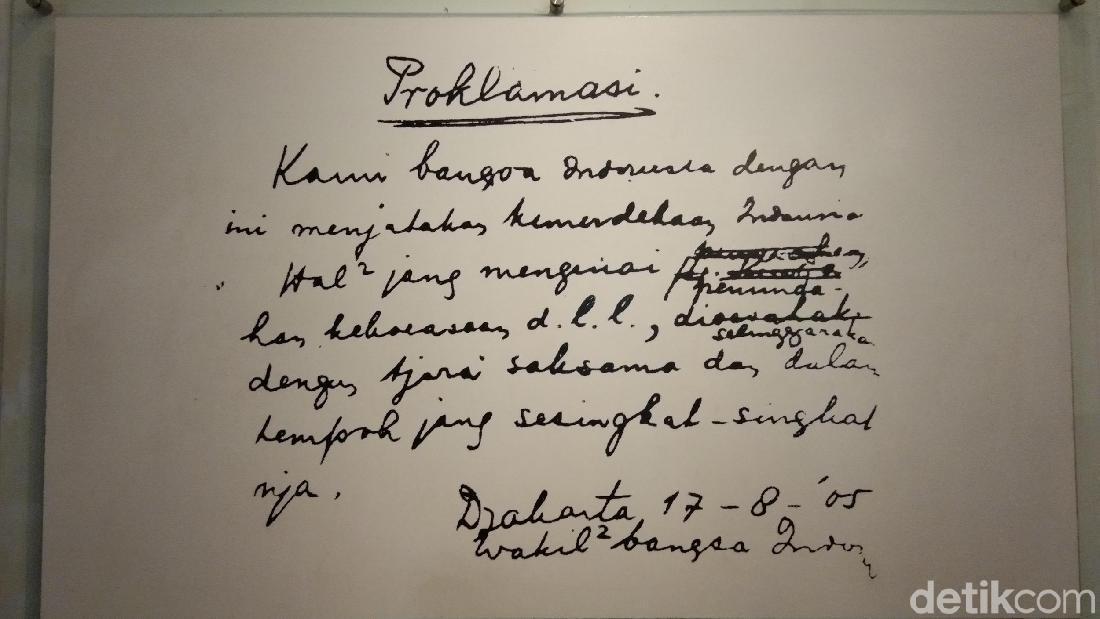 Proklamasi.
Kami bangsa Indonesia dengan
ini menjatakan kemerdekaan Indonesia
Hal² jang mengenai
peminda-
han kekoeasaan d.l.l.,
diselenggarakan
dengan tjara saksama dan dalam
tempoh jang sesingkat-singkat
nja.
Djakarta 17 - 8 - '05
Wakil² bangsa Indon
detikcom